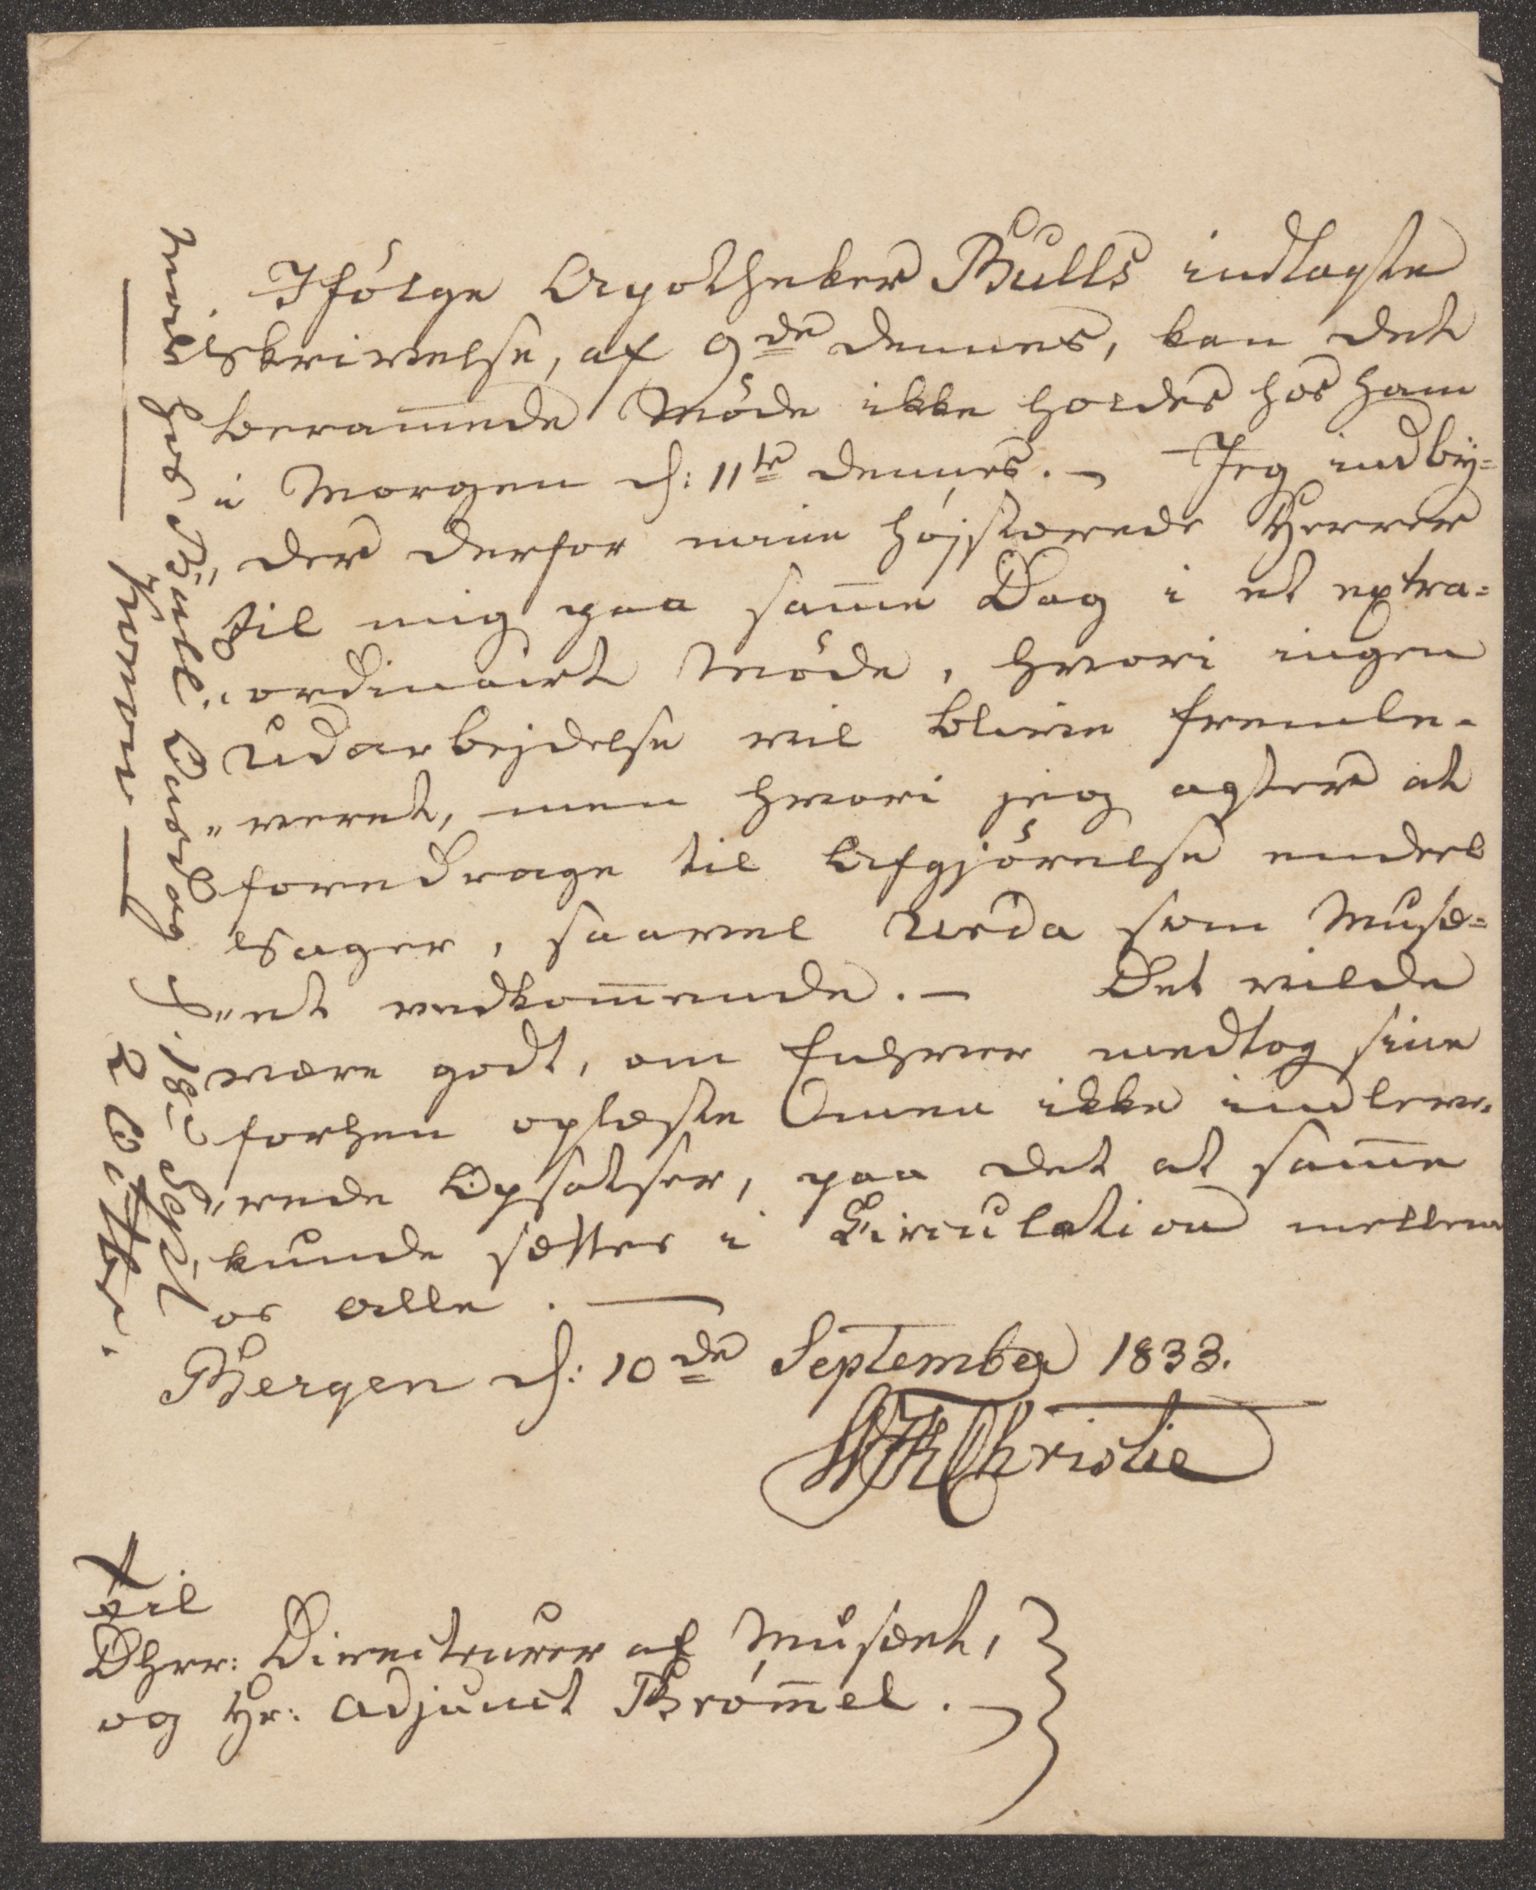 Ifölge Apotheker Bulls indlagte
Skrivelse, af 9de dennes, kan det
beram̅ede Möde ikke holdes hos ham
i Morgen d: 11te dennes. – Jeg indby=
"der derfor mine højstærede Herrer
til mig paa sam̅e Dag i et extra=
"ordinairt Möde, hvori ingen
Udarbejdelse vil blive fremle=
"veret, men hvori jeg agter at
foredrage til Afgjörelse endeel
Sager, saavel Urda som Musæ=
"et vedkom̅ende. – Det vilde
være godt, om Enhver medtog sine
forhen oplæste Omen ikke indleve=
"rede Opsatser, paa det at sam̅e
kunde sættes i Circulation mellem
os Alle. —
Bergen d: 10de September 1833.
WFKChristie
Til
Dhrr: Directeurer af Musæet,
og Hr: Adjunct Bröm̅el. –
hos Bull Onsdag d. 18 Sept